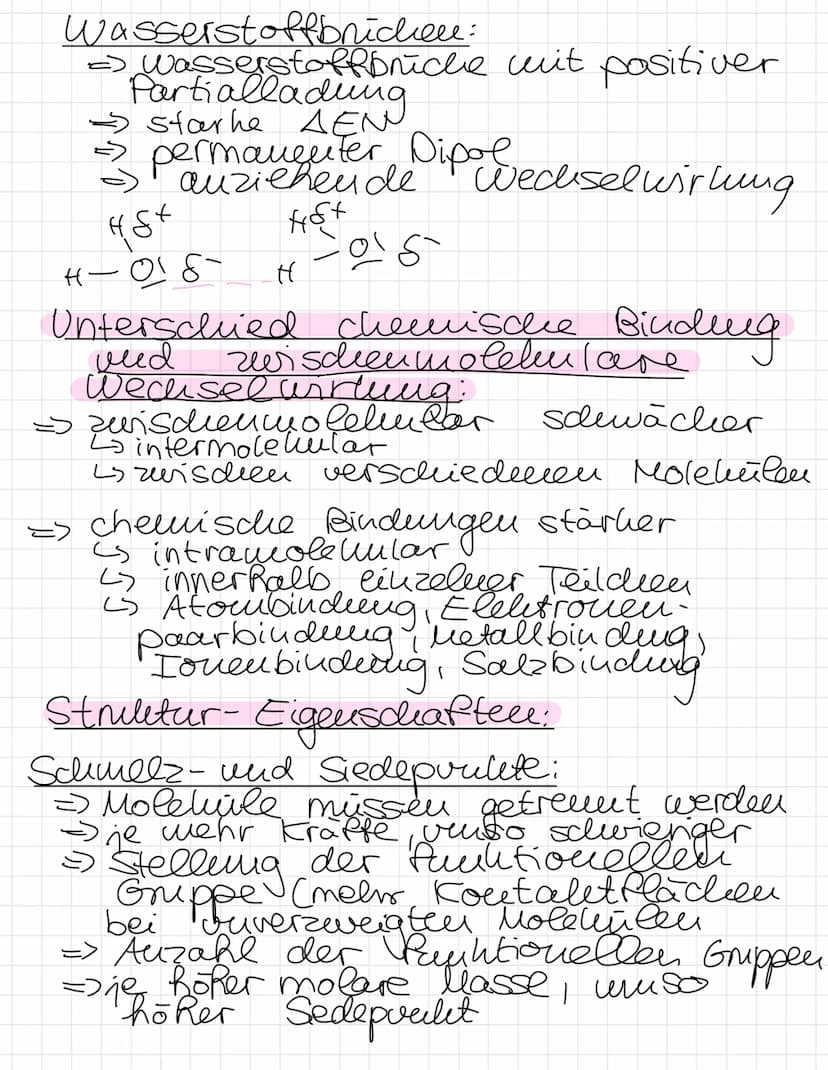 Wasserstoffbrücken:
=> Wasserstoffbrücke mit positiver
Partialladung
=> starke ΔEN
=> permanenter Dipol
=> anziehende Wechselwirkung
H δ+ H δ+
H – O δ- H – O δ-
Unterschied chemische Bindung
und zwischenmolekulare
Wechselwirkung:
=> zwischenmolekular schwächer
↳ intermolekular
↳ zwischen verschiedenen Molekülen
=> chemische Bindungen stärker
↳ intramolekular
↳ innerhalb einzelner Teilchen
↳ Atombindung, Elektronen-
paarbindung, Metallbindung,
Ionenbindung, Salzbindung
Struktur-Eigenschaften:
Schmelz- und Siedepunkte:
=> Moleküle müssen getrennt werden
=> je mehr Kräfte, umso schwieriger
=> Stellung der funktionellen
Gruppe (mehr Kontaktflächen
bei unverzweigten Molekülen
=> Anzahl der funktionellen Gruppen
=> je höher molare Masse, umso
höher Sedepunkt